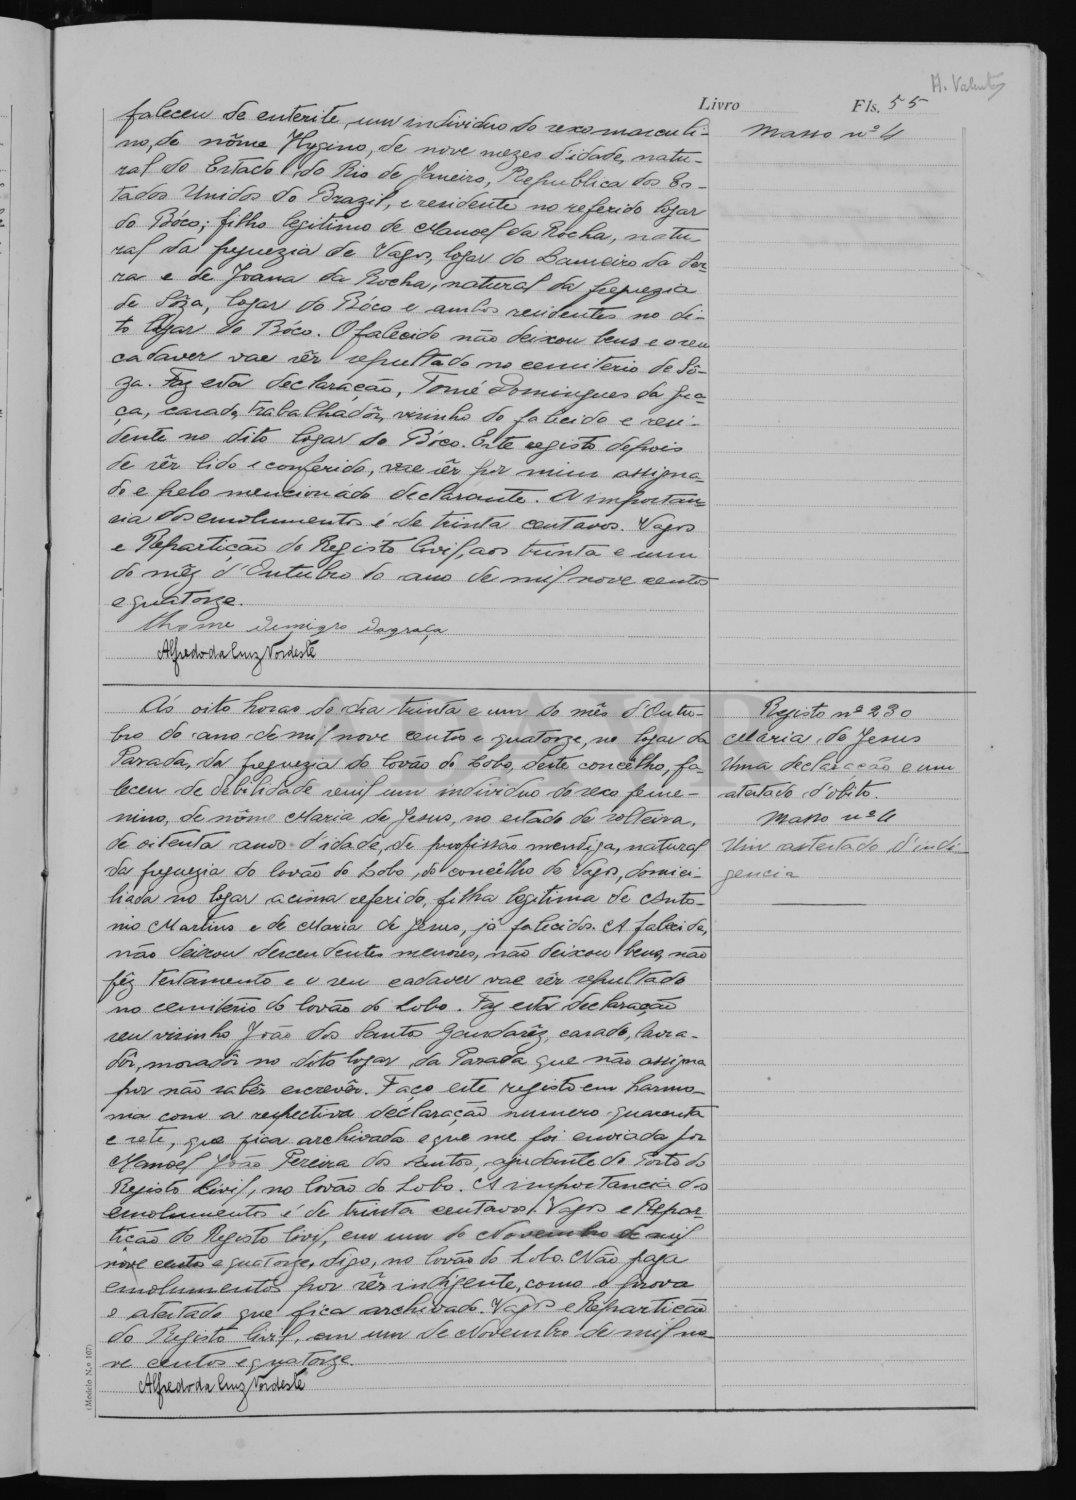 A. Valente
Livro Fls. 55
faleceu de enterite, um individuo do sexo masculi-
no, de nôme Hygino, de nove mezes d'idade, natu-
ral do Estado do Rio de Janeiro, Republica dos Es-
tados Unidos do Brazil, e residente no referido logar
do Bóco; filho legitimo de Manoel da Rocha, natu-
ral da freguezia de Vagos, logar do Lameiro da Ser-
ra e de Joana da Rocha, natural da freguezia
de Sôza, logar do Bóco e ambos residentes no di-
to logar do Bóco. O falecido não deixou bens e o seu
cadaver vae sêr sepultado no cemiterio de Sô-
za. Faz esta declaração, Tomé Domingues da Gra-
ça, casado, trabalhadôr, visinho do falecido e resi-
dente no dito logar do Bóco. Este registo depois
de sêr lido e conferido, vae sêr por mim assigna-
do e pelo mencionádo declarante. A importan-
cia dos emolumentos é de trinta centavos. Vagos
e Repartição do Registo Civil, aos trinta e um
do mêz d'Outubro do ano de mil nove centos
e quatorze.
Thome Demigos Dagraça
Alfredo da Cruz Nordeste
Masso nº 4
Ás oito horas do dia trinta e um do mês d'Outu-
bro do ano de mil nove centos e quatorze, no logar da
Parada, da freguezia do Covão do Lobo, deste concelho, fa-
leceu de debilidade senil um individuo do sexo feme-
nino, de nôme Maria de Jesus, no estado de solteira,
de oitenta anos d'idade, de profissão mendiga, natural
da freguezia do Covão do Lobo, do concêlho de Vagos, domici-
liada no logar acima referido, filha legitima de Anto-
nio Martins e de Maria de Jesus, já falecidos. A falecida,
não deixou descendentes menores, não deixou bens, não
fêz testamento e o seu cadaver vae sêr sepultado
no cemitério do Covão do Lobo. Faz esta declaração
seu visinho João dos Santos Gandarêz, casado, lavra-
dôr, moradôr no dito logar da Parada que não assigna
por não sabêr escrevêr. Faço este registo em harmo-
nia com a respectiva declaração numero quarenta
e sete, que fica archivada e que me foi enviada por
Manoel João Pereira dos Santos, ajudante do Posto do
Registo Civil, no Covão do Lobo. A importancia dos
emolumentos é de trinta centavos. Vagos e Repar-
tição do Registo Civil, em um de Novembro de mil
nove cento e quatorze, digo, no Covão do Lobo. Não paga
emolumentos por sêr indigente, como o prova
o atestado que fica archivado. Vagos e Repartição
do Registo Civil, em um de Novembro de mil no-
ve centos e quatorze.
Alfredo da Cruz Nordeste
Registo nº 230
Maria de Jesus
Uma declaração e um
atestado d'obito.
Masso nº 4
Um astestado d'indi-
gencia
(Modelo N.º 107)